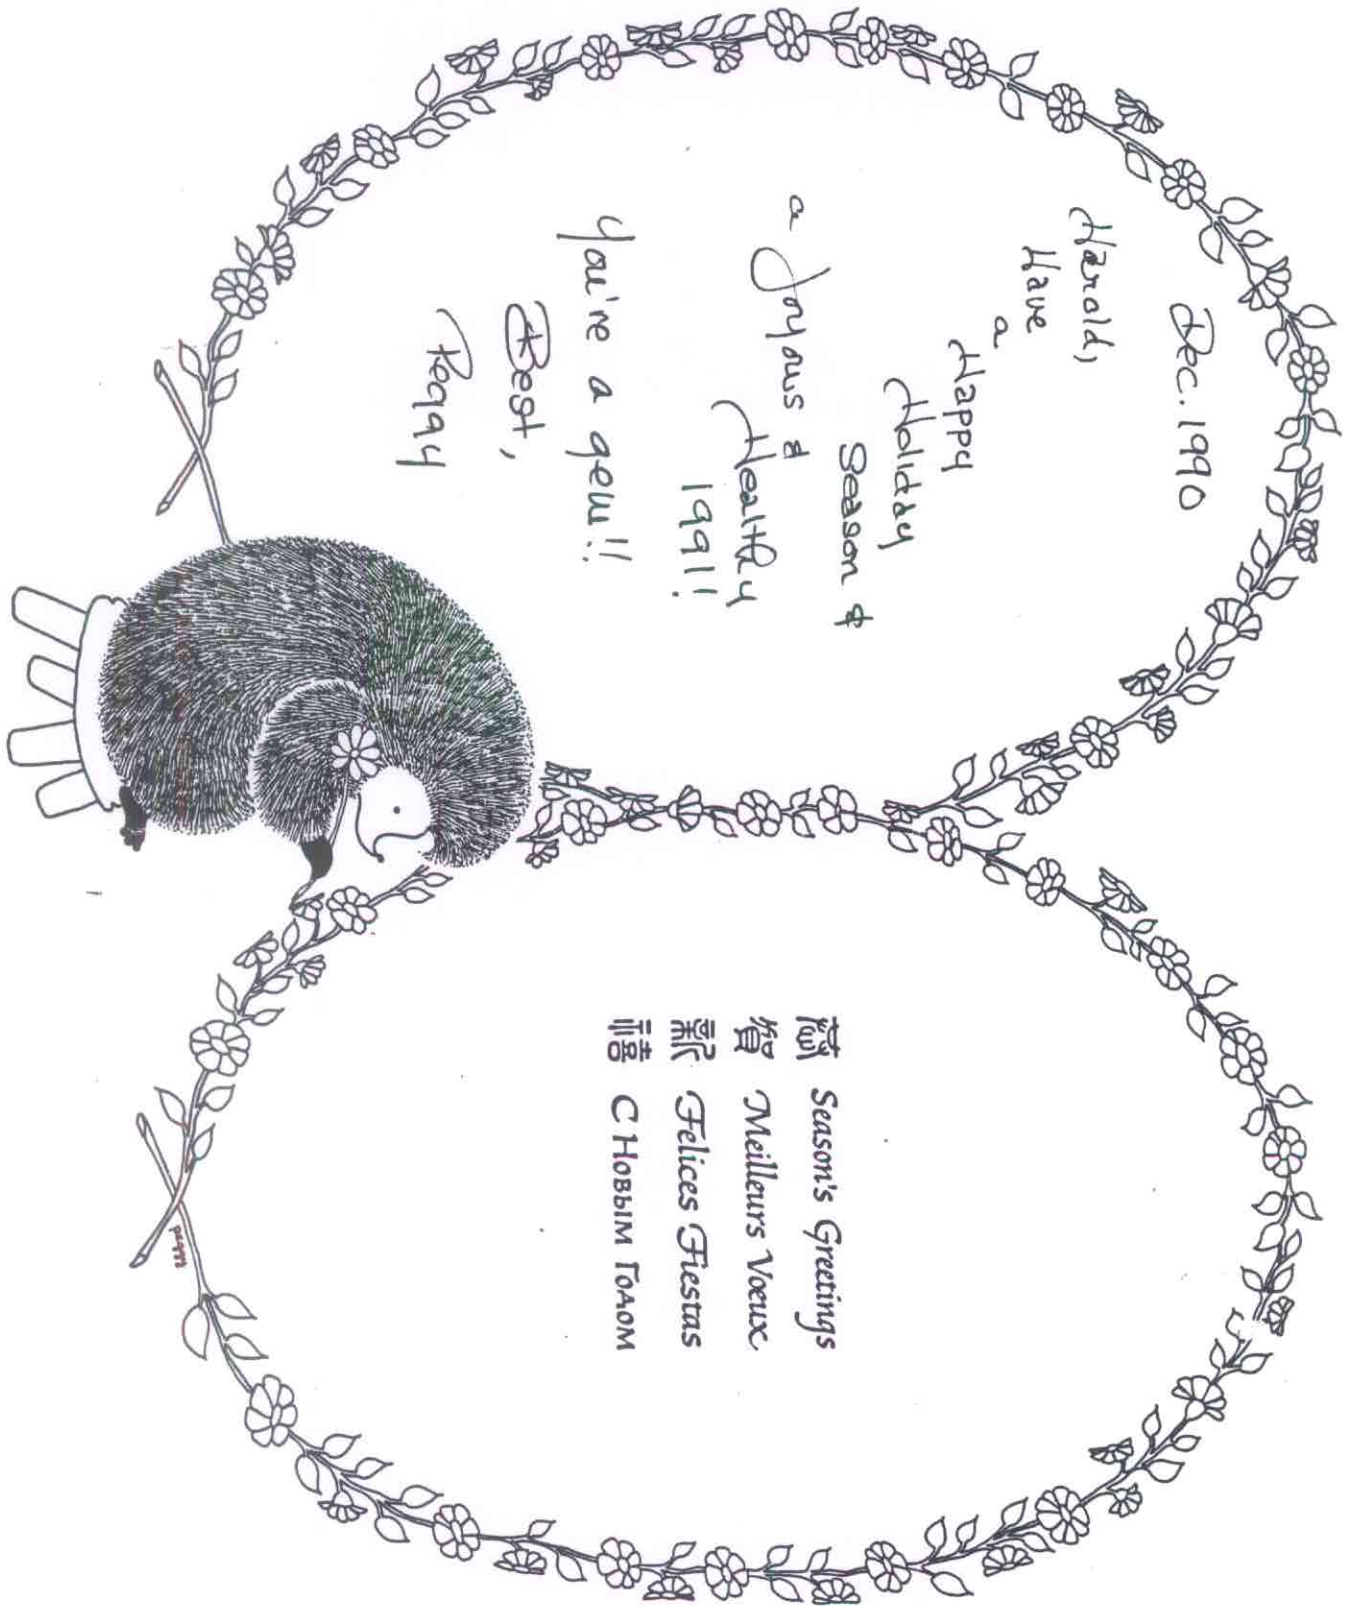 Dec. 1990
Harold,
Have
a
Happy
Holiday
Season &
a Joyous &
Healthy
1991!
You're a gem!!
Best,
Peggy
恭 Season's Greetings
賀 Meilleurs Voeux
新 Felices Fiestas
禧 С Новым Годом
peggy